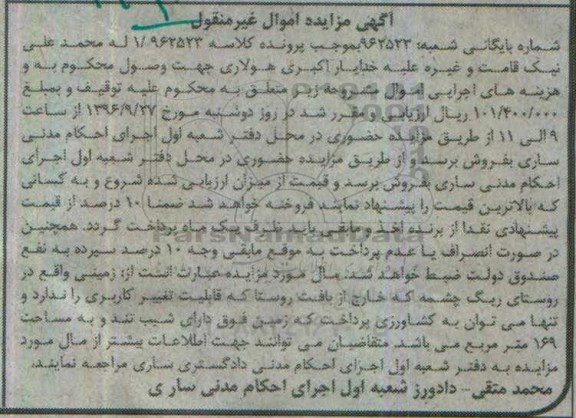 آگهی مزایده اموال غیرمنقول
شماره بایگانی شعبه: ۹۶۲۵۲۳بموجب پرونده کلاسه ۹۶۲۵۲۳ /۱ له محمد علی
نیک قامت و غیره علیه خدایار اکبری هولاری جهت وصول محکوم به و
هزینه های اجرایی اموال مشروحه زیر متعلق به محکوم علیه توقیف و بمبلغ
۱۰۱/۴۰۰/۰۰۰ ریال ارزیابی و مقرر شد در روز دوشنبه مورخ ۱۳۹۶/۹/۲۷ از ساعت
۹ الی ۱۱ از طریق مزایده حضوری در محل دفتر شعبه اول اجرای احکام مدنی
ساری بفروش برسد و از طریق مزایده حضوری در محل دفتر شعبه اول اجرای
احکام مدنی ساری بفروش برسد و قیمت از میزان ارزیابی شده شروع و به کسانی
که بالاترین قیمت را پیشنهاد نمایند فروخته خواهد شد ضمنا ۱۰ درصد از قیمت
پیشنهادی نقدا از برنده اخذ و مابقی باید ظرف یک ماه پرداخت گردد. همچنین
در صورت انصراف یا عدم پرداخت به موقع مابقی وجه ۱۰ درصد سپرده به نفع
صندوق دولت ضبط خواهد شد. مال مورد مزایده عبارت است از: زمینی واقع در
روستای ریگ چشمه که خارج از بافت روستا که قابلیت تغییر کاربری را ندارد و
تنها می توان به کشاورزی پرداخت که زمین فوق دارای شیب تند و به مساحت
۱۶۹ متر مربع می باشد. متقاضیان می توانند جهت اطلاعات بیشتر از مال مورد
مزایده به دفتر شعبه اول اجرای احکام مدنی دادگستری ساری مراجعه نمایند.
محمد متقی- دادورز شعبه اول اجرای احکام مدنی سار ی